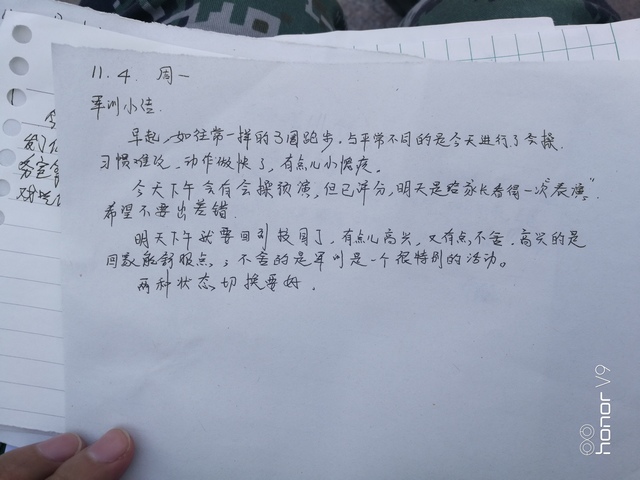 11.4. 周一
军训小结
早起,如往常一样的3圈跑步,与平常不同的是今天进行了会操.
习惯难说,动作做快了,有点儿小愧疚。
今天下午会有会操预演,但已评分,明天是给家长看得一次"表演",
希望不要出差错.
明天下午就要回到校园了,有点儿高兴,又有点不舍,高兴的是
回家能舒服点,;不舍的是军训是一个很特别的活动。
两种状态,切换要好.
honor V9